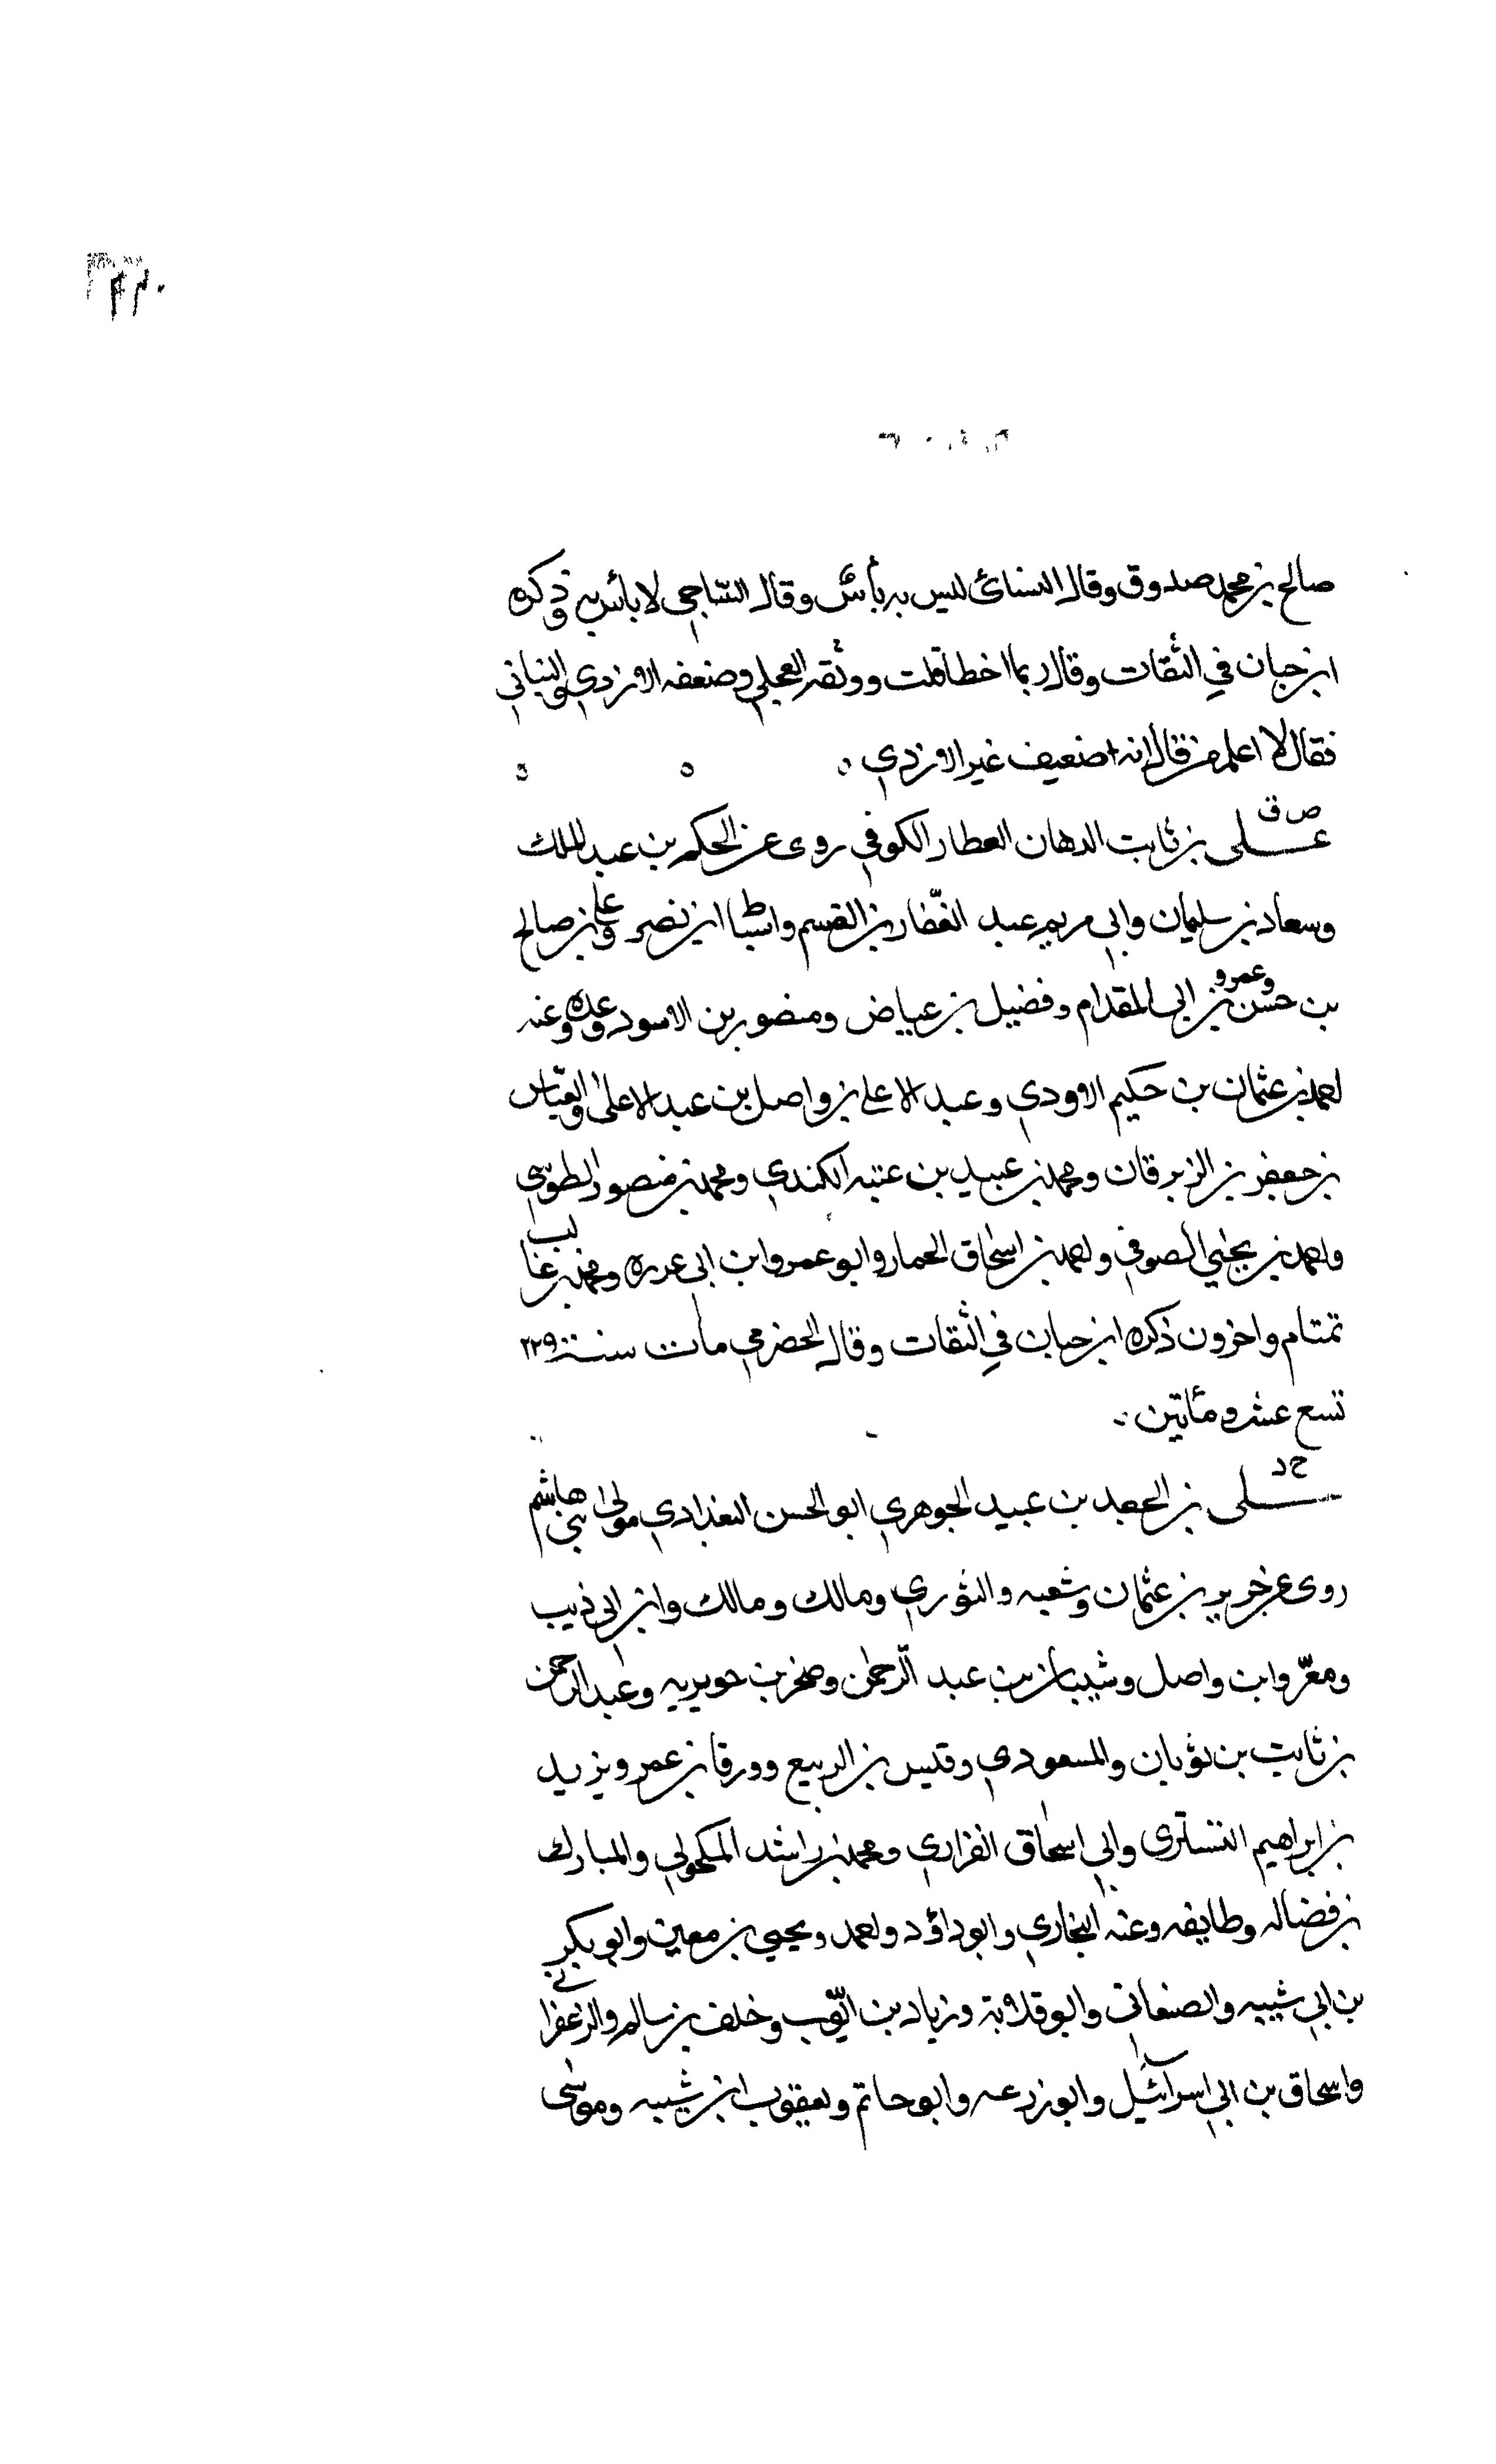 صالح بن محمد صدوق وقال النسائ ليس به بأس وقال الساجي لا بأس به وذكره
ابن حبان في الثقات وقال ربما اخطا قلت ووثقه العجلي وضعفه الازدي والبناني
فقال لا اعلم من قال انه ضعيف غير الازدي
ص ق
عـلى بن ثابت الدهان العطار الكوفي روى عن الحكم بن عبد الملك
وسعاد بن سليمان وابي مريم عبد الغفار بن القسم واسباط ابن نصر وعلي بن صالح
بن حسن وعمرو بن ابي المقدام وفضيل بن عياض ومنصور بن الاسود وعده وعنه
احمد بن عثمان بن حكيم الاودي وعبد الاعلى بن واصل بن عبد الاعلى والعباس
بن جعفر بن الزبرقان ومحمد بن عبيد بن عتبه الكندي ومحمد بن منصور الطوسي
واحمد بن يحيي الصوفي واحمد بن اسحاق الحمار وابو عمرو ابن ابي عرره ومحمد بن غالب
تمتام واخرون ذكره ابن حبان في الثقات وقال الحضرمي مات سنة ٢٢٩
تسع عشر ومأتين
خ د
عـلى بن الجعد بن عبيد الجوهري ابو الحسن البغدادي مولى بني هاشم
روى عن حريز بن عثمان وشعبه والثوري ومالك ومالك وابن ابي ذيب
ومعرّوابن واصل وشيبان بن عبد الرحمن وصخر بن جويريه وعبد الرحمن
بن ثابت بن ثوبان والمسعودي وقيس بن الربيع وورقا بن عمر ويزيد
بن ابراهيم التستري وابي اسحاق الفزاري ومحمد بن راشد المكحولي والمبارك
بن فضاله وطايفه وعنه البخاري وابو داؤد واحمد ويحيي بن معين وابو بكر
بن ابي شيبه والصنعاني وابو قلابة وزياد بن ايّوب وخلف بن سالم والزعفراني
واسحاق بن ابي اسرآئيل وابو زرعه وابو حاتم ويعقوب ابن شيبه وموسى